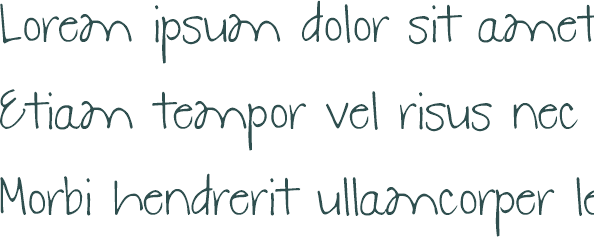 Lorem ipsum dolor sit amet
Etiam tempor vel risus nec
Morbi hendrerit ullamcorper le